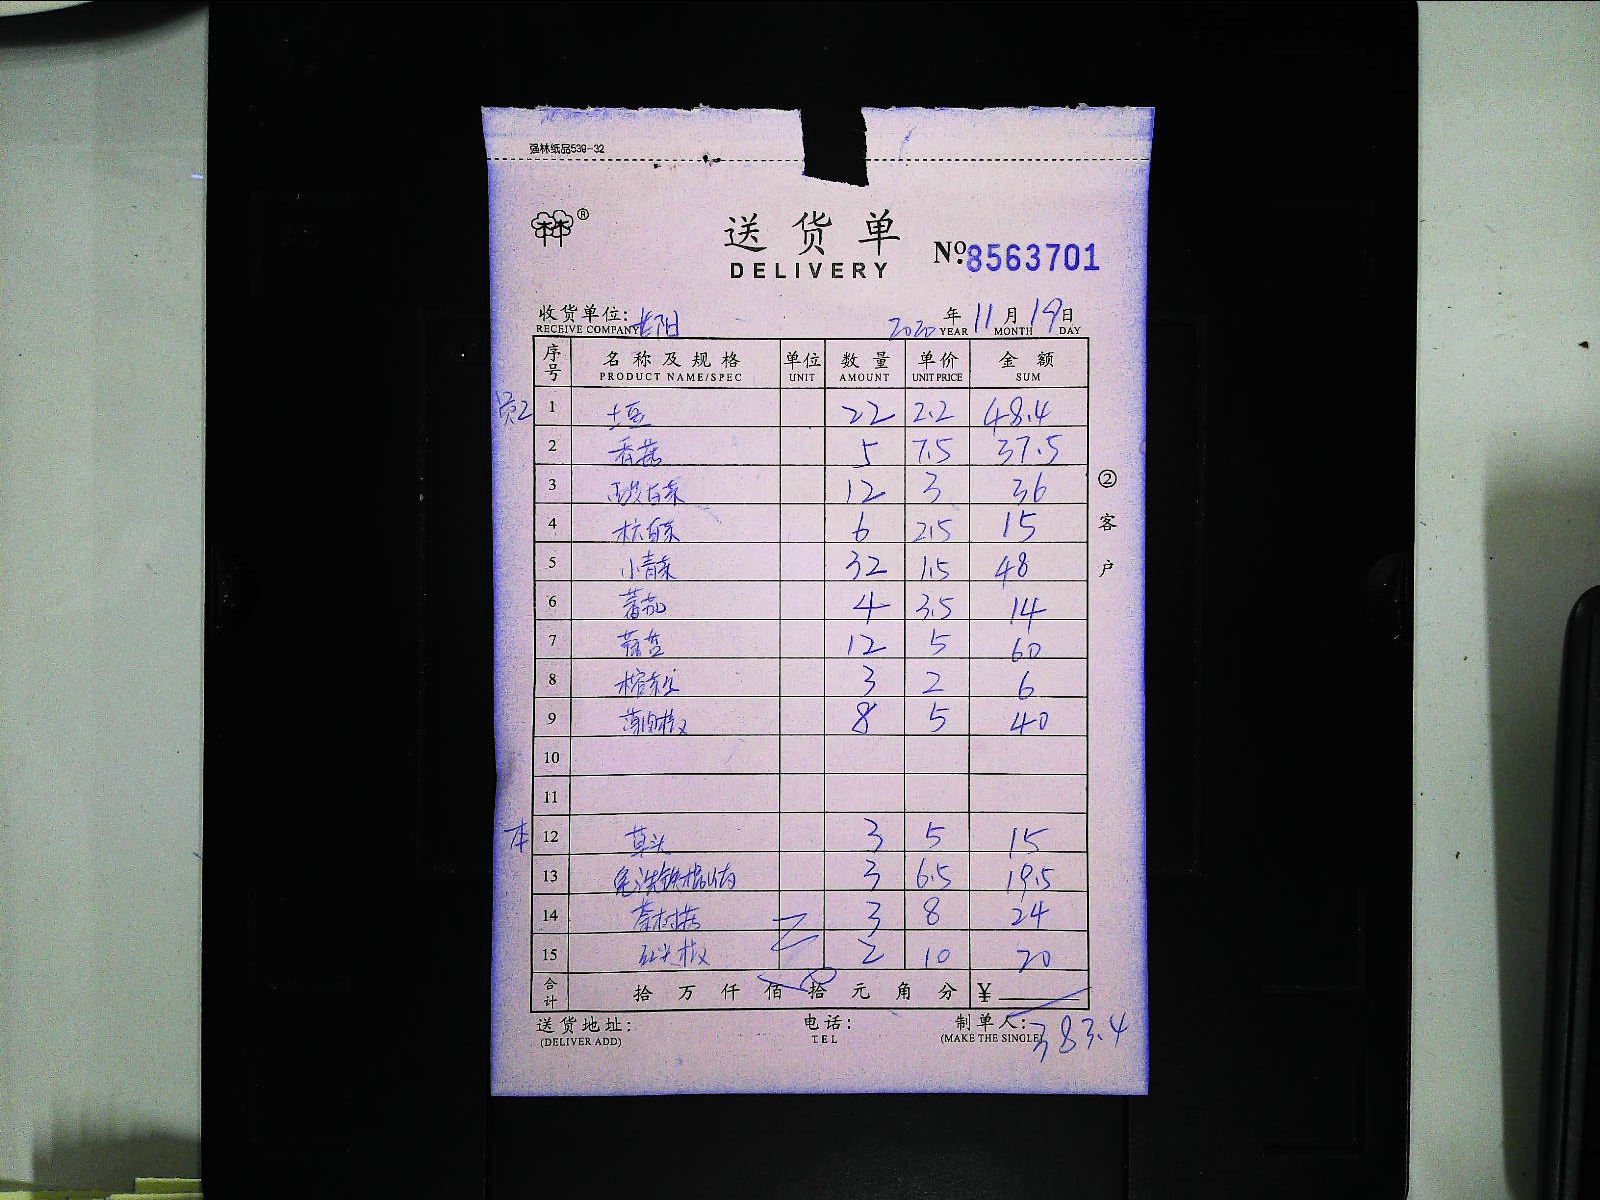 强林纸品539-32
®
送货单
DELIVERY
No.8563701
收货单位:
RECEIVE COMPANY
2020年11月19日
YEAR MONTH DAY
序号 名称及规格 单位 数量 单价 金额
PRODUCT NAME/SPEC UNIT AMOUNT UNIT PRICE SUM
1 土豆 22 2.2 48.4
2 香菇 5 7.5 37.5
3 12 3 36
4 杭白菜 6 2.5 15
5 小青菜 32 1.5 48
6 蕃茄 4 3.5 14
7 12 5 60
8 3 2 6
9 薄肉椒 8 5 40
10
11
本 12 草头 3 5 15
13 3 6.5 19.5
14 茶树菇 3 8 24
15 红尖椒 2 10 20
合计 拾万仟佰拾元角分 ¥
383.4
送货地址: 电话: 制单人:
(DELIVER ADD) TEL (MAKE THE SINGLE)
②客户